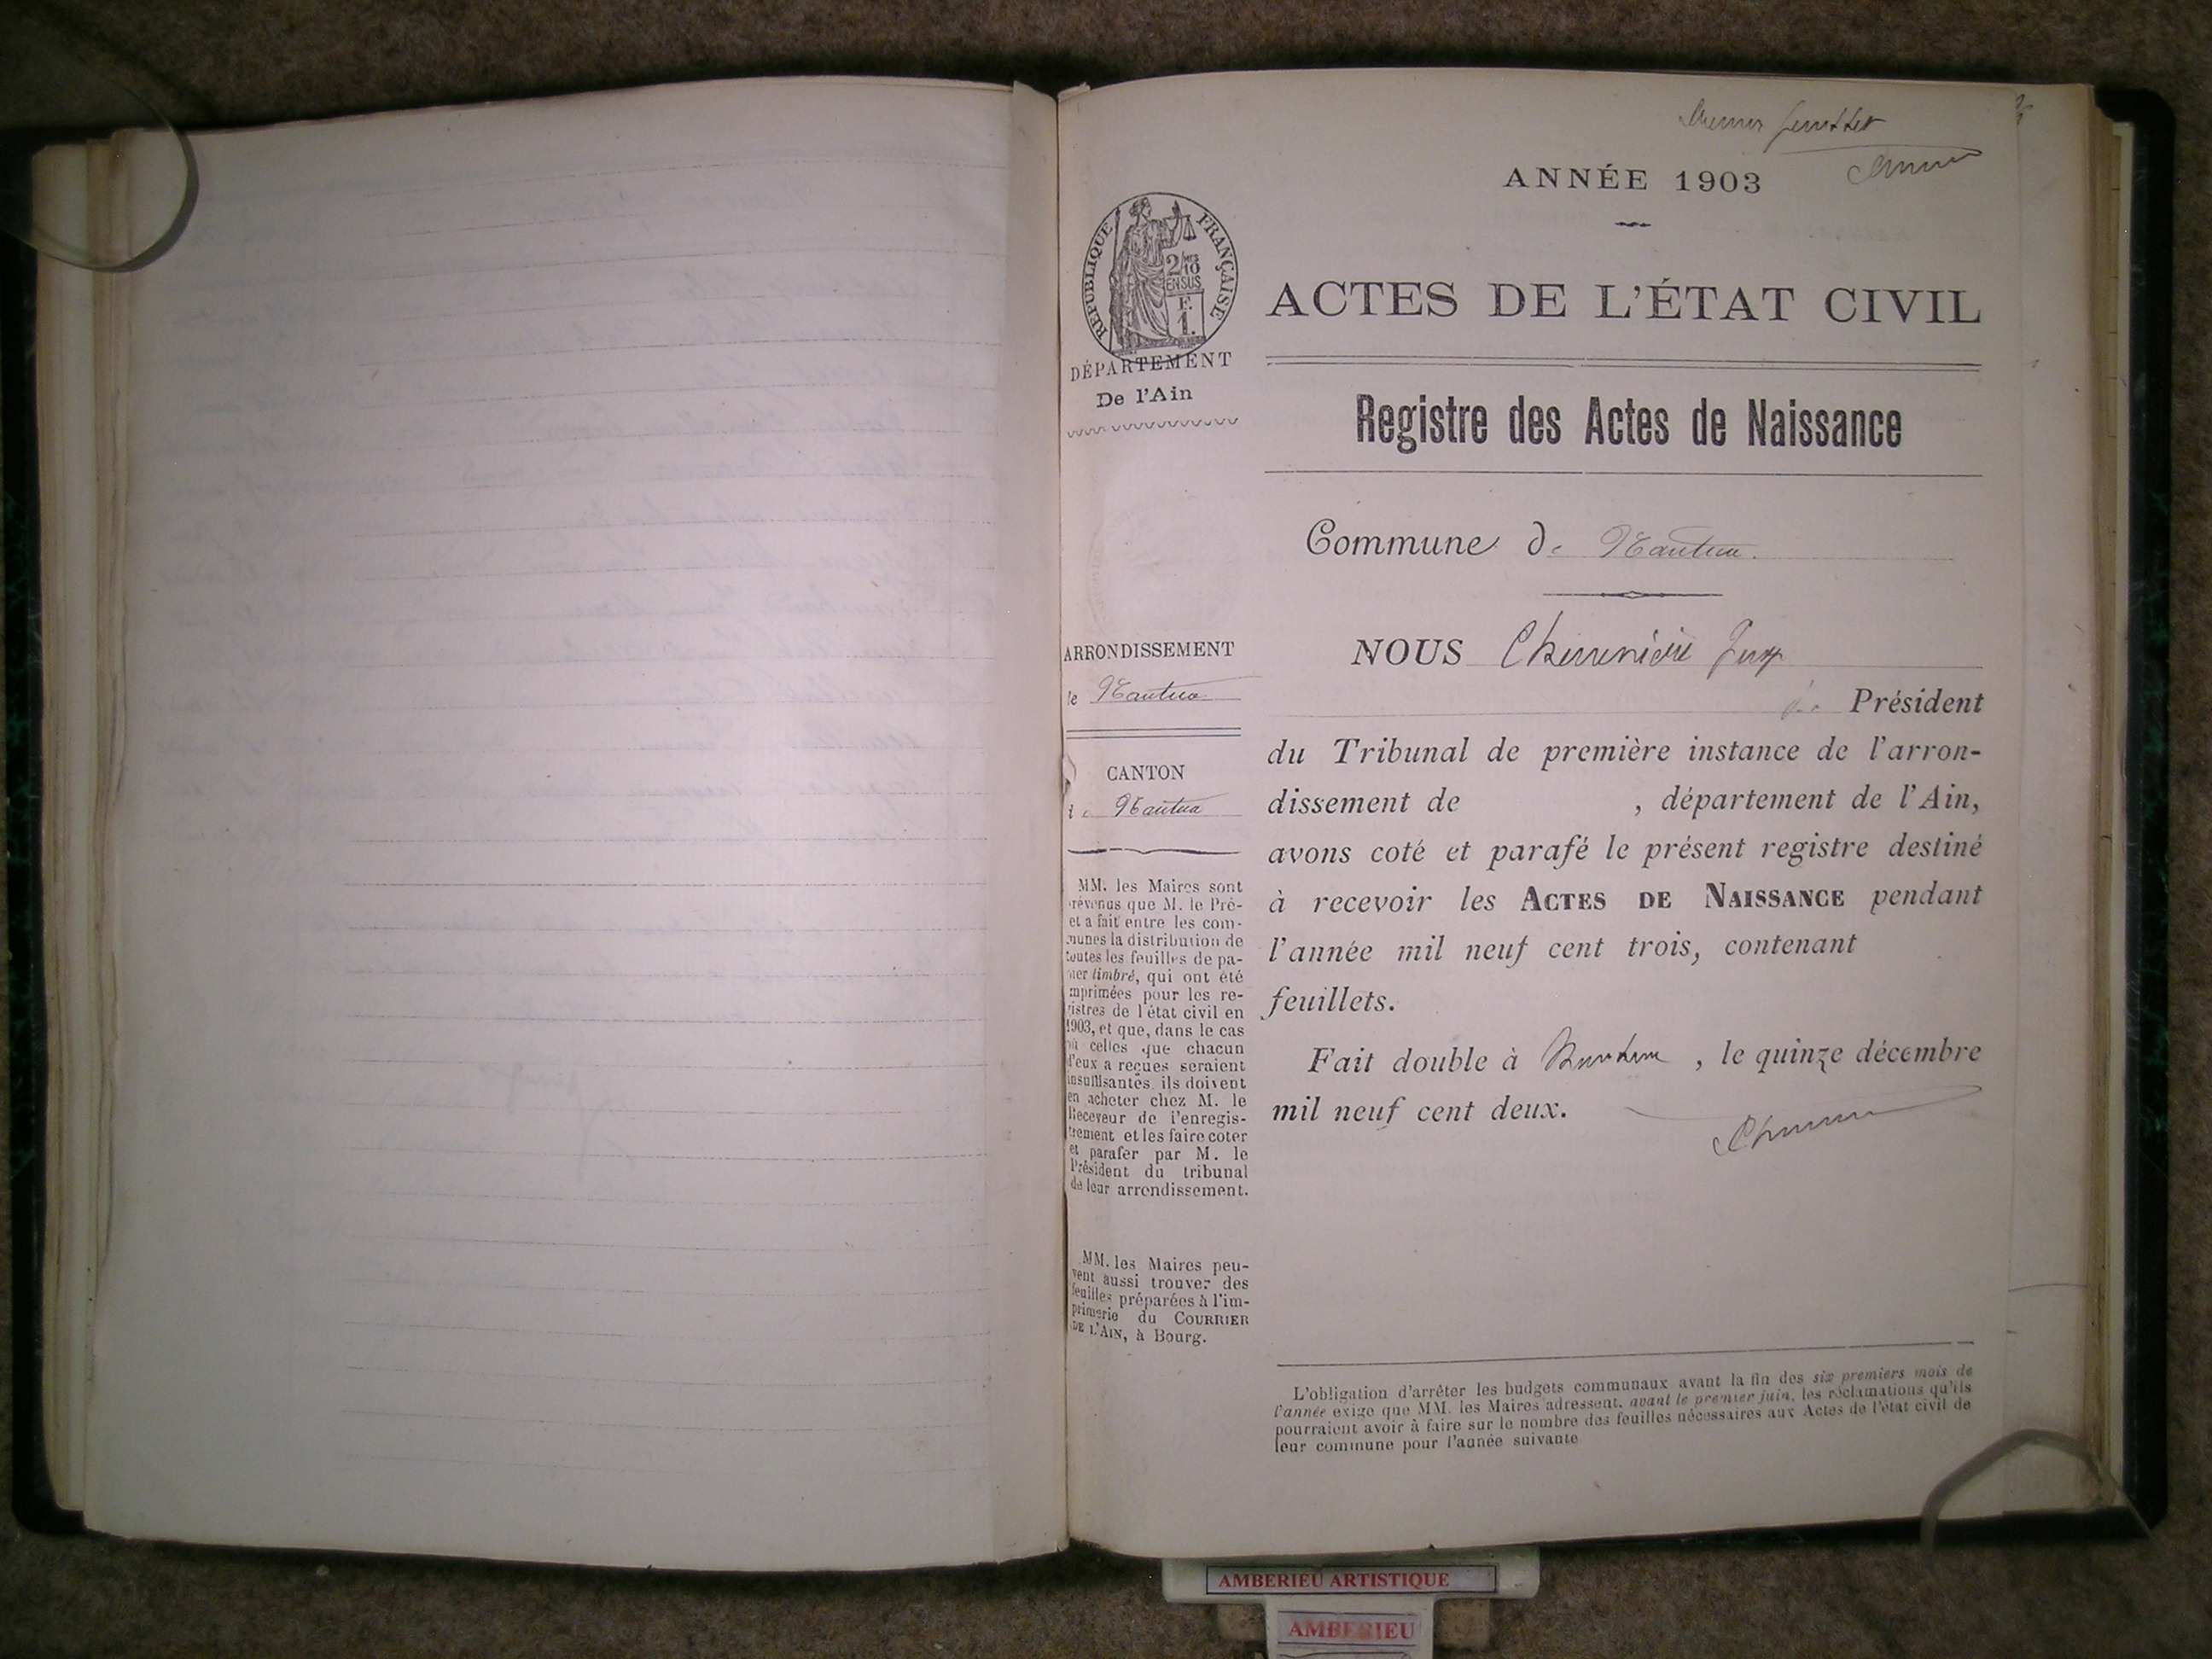 ANNÉE 1903
ACTES DE L'ÉTAT CIVIL
Registre des Actes de Naissance
Commune de Nantua.
NOUS
Président
du Tribunal de première instance de l'arron-
dissement de , département de l'Ain,
avons coté et parafé le présent registre destiné
à recevoir les ACTES DE NAISSANCE pendant
l'année mil neuf cent trois, contenant
feuillets.
Fait double à Nantua , le quinze décembre
mil neuf cent deux.
L'obligation d'arrêter les budgets communaux avant la fin des six premiers mois de
l'année exige que MM. les Maires adressent, avant le premier juin, les réclamations qu'ils
pourraient avoir à faire sur le nombre des feuilles nécessaires aux Actes de l'état civil de
leur commune pour l'année suivante
RÉPUBLIQUE FRANÇAISE
2/10
EN SUS
F.
1.
DÉPARTEMENT
De l'Ain
ARRONDISSEMENT
de Nantua
CANTON
de Nantua
MM. les Maires sont
prévenus que M. le Pré-
et a fait entre les com-
munes la distribution de
toutes les feuilles de pa-
pier timbré, qui ont été
imprimées pour les re-
gistres de l'état civil en
1903, et que, dans le cas
où celles que chacun
d'eux a reçues seraient
insuffisantes, ils doivent
en acheter chez M. le
Receveur de l'enregis-
trement et les faire coter
et parafer par M. le
Président du tribunal
de leur arrondissement.
MM. les Maires peu-
vent aussi trouver des
feuilles préparées à l'im-
primerie du COURRIER
DE L'AIN, à Bourg.
AMBERIEU ARTISTIQUE
AMBERIEU